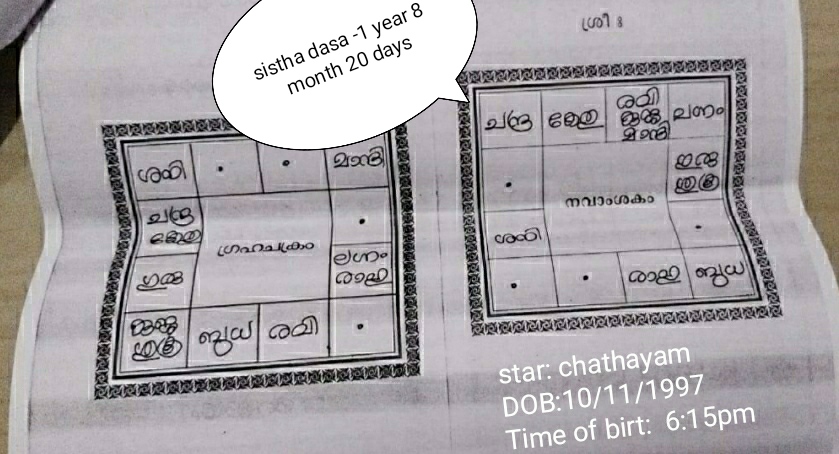 sistha dasa -1 year 8
month 20 days
ശ്രീഃ
ശനി
മാന്ദി
ചന്ദ്ര
കേതു
ഗ്രഹചക്രം
ലഗ്നം
രാഹു
ഗുരു
കുജ
ശുക്ര
ബുധ
രവി
ചന്ദ്ര
കേതു
രവി
കുജ
മാന്ദി
ലഗ്നം
ഗുരു
ശുക്ര
നവാംശകം
ശനി
രാഹു
ബുധ
star: chathayam
DOB:10/11/1997
Time of birt: 6:15pm